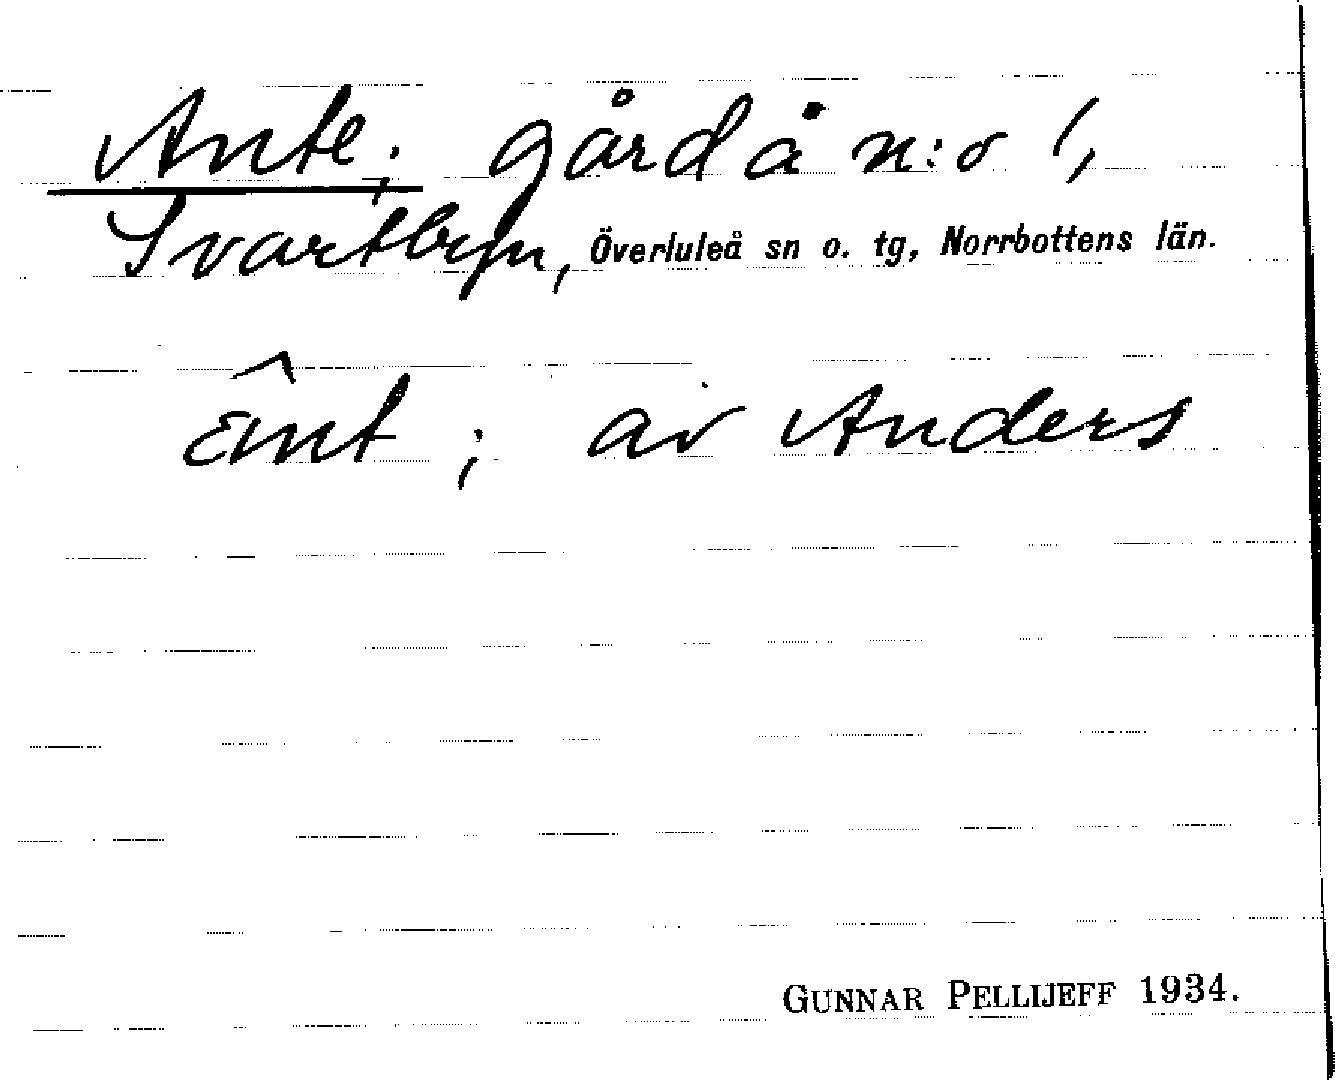 Ante; gård å n:o 1,
Svartbyn, Överluleå sn o. tg, Norrbottens län.
; av Anders
GUNNAR PELLIJEFF 1934.